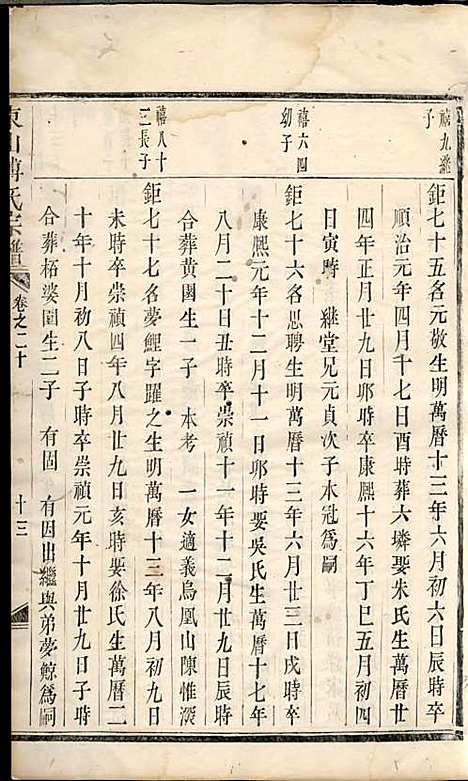 禧九繼子
鉅七十五名元敬生明萬曆十三年六月初六日辰時卒
順治元年四月十七日酉時葬六璘娶朱氏生萬曆廿
四年正月廿九日卯時卒康熙十六年丁巳五月初四
日寅時 継堂兄元貞次子水冠為嗣
禧六四幼子
鉅七十六名思聘生明萬曆十三年六月廿三日戌時卒
康熙元年十二月十一日卯時娶吳氏生萬曆十七年
八月二十日丑時卒崇禎十一年十二月廿九日辰時
合葬黄園生一子 本考 一女適義烏凰山陳惟深
禧八十三長子
鉅七十七名夢鯉字躍之生明萬曆十三年八月初九日
未時卒崇禎四年八月廿九日亥時娶徐氏生萬曆二
十年十月初八日子時卒崇禎元年十月廿九日子時
合葬栢婆園生二子 有固 有因出繼與弟夢鯨為嗣
東山傅氏宗譜 卷之二十 十三